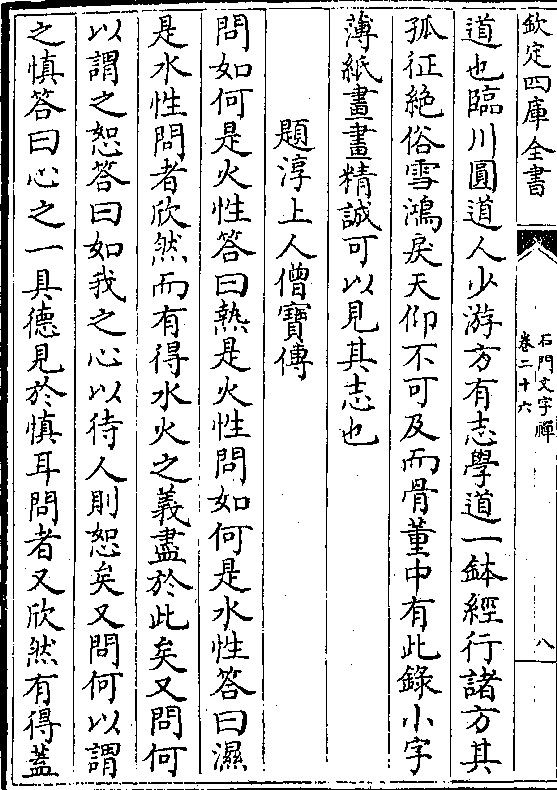 欽定四庫全書
石門文字禪
卷二十六
八
道也臨川圓道人少游方有志學道一鉢經行諸方其
孤征絶俗雪鴻戾天仰不可及而骨董中有此錄小字
薄紙畫畫精誠可以見其志也
題淳上人僧寶傳
問如何是火性答曰熱是火性問如何是水性答曰濕
是水性問者欣然而有得水火之義盡於此矣又問何
以謂之恕答曰如我之心以待人則恕矣又問何以謂
之慎答曰心之一具德見於慎耳問者又欣然有得蓋